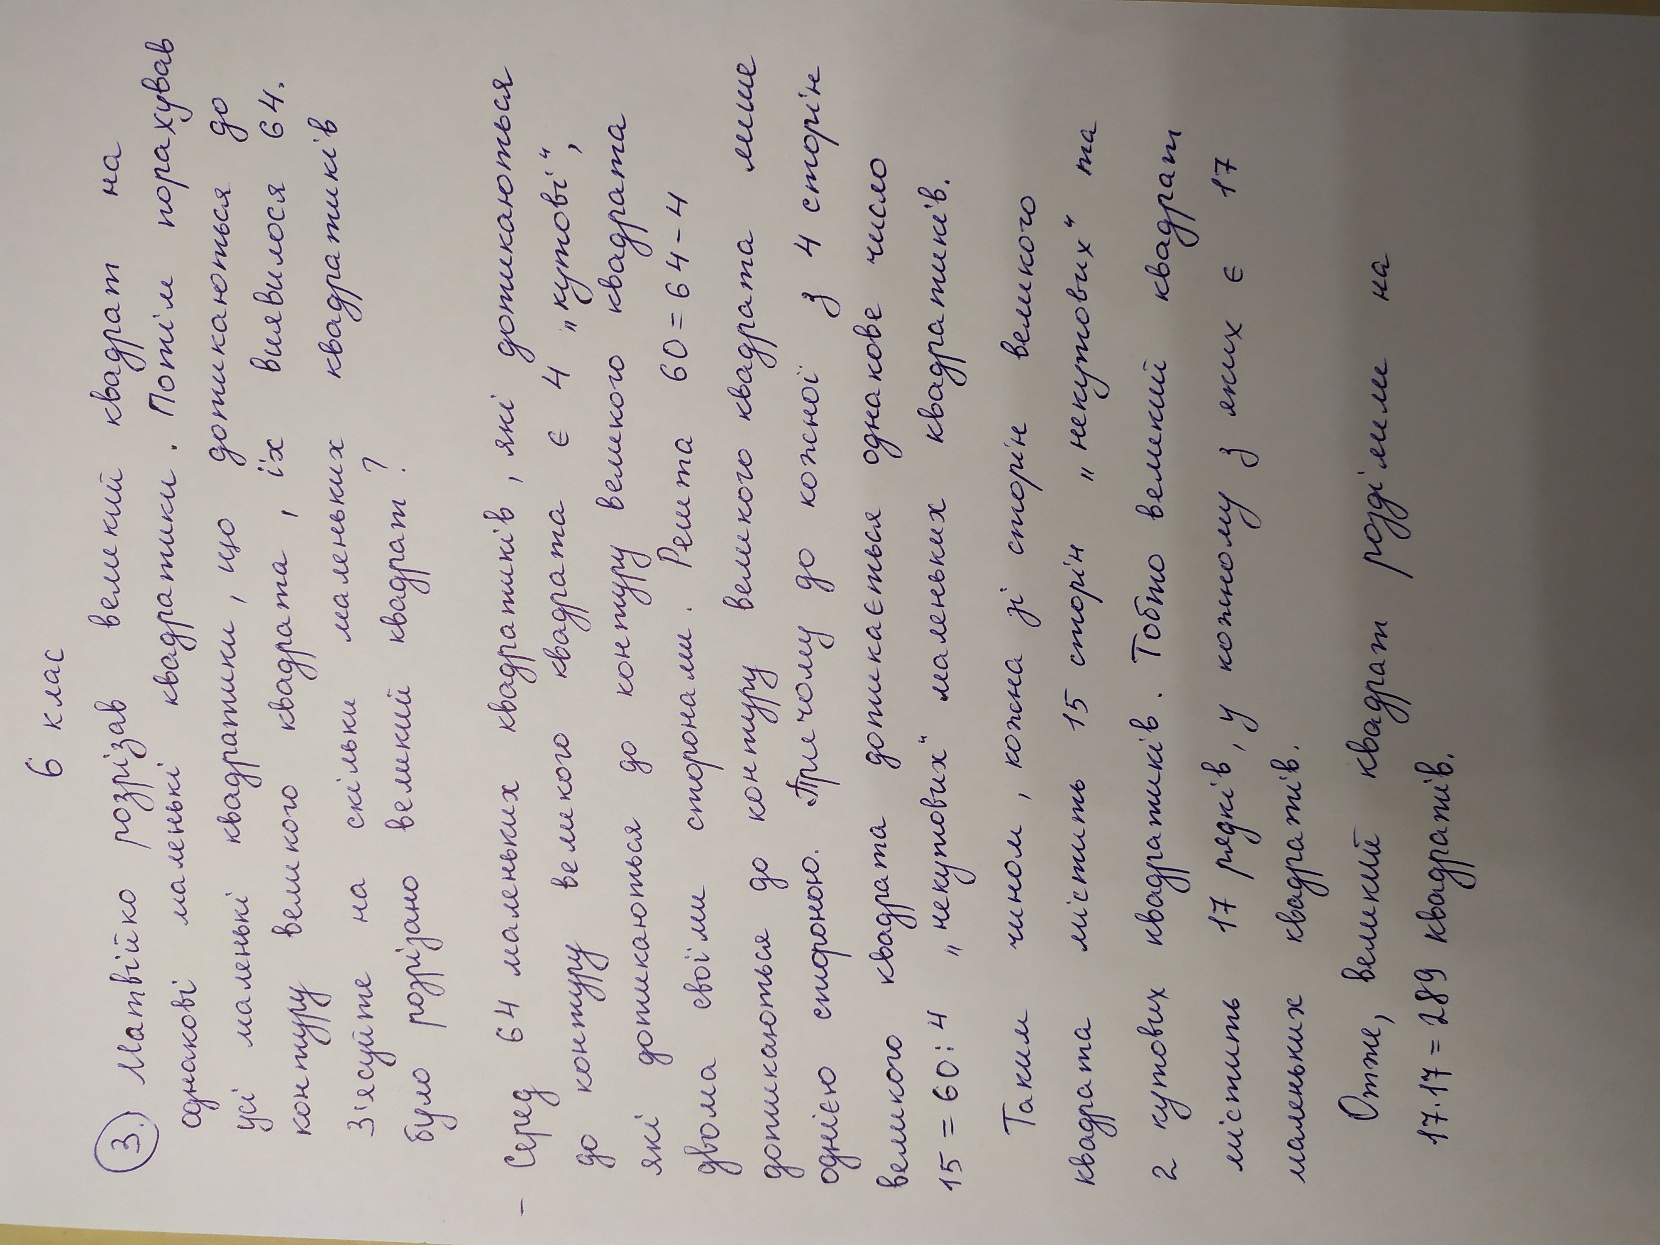 6 клас
3. Матвійко розрізав великий квадрат на
однакові маленькі квадратики. Потім порахував
усі маленькі квадратики, що дотикаються до
контуру великого квадрата, їх виявилося 64.
З'ясуйте на скільки маленьких квадратиків
було розрізано великий квадрат?
- Серед 64 маленьких квадратиків, які дотикаються
до контуру великого квадрата є 4 „кутові",
які дотикаються до контуру великого квадрата
двома своїми сторонами. Решта 60=64-4
дотикаються до контуру великого квадрата лише
однією стороною. Причому до кожної з 4 сторін
великого квадрата дотикається однакове число
15=60:4 „некутових" маленьких квадратиків.
Таким чином, кожна зі сторін великого
квадрата містить 15 сторін „некутових" та
2 кутових квадратиків. Тобто великий квадрат
містить 17 рядків, у кожному з яких є 17
маленьких квадратів.
Отже, великий квадрат розділили на
17·17=289 квадратів.